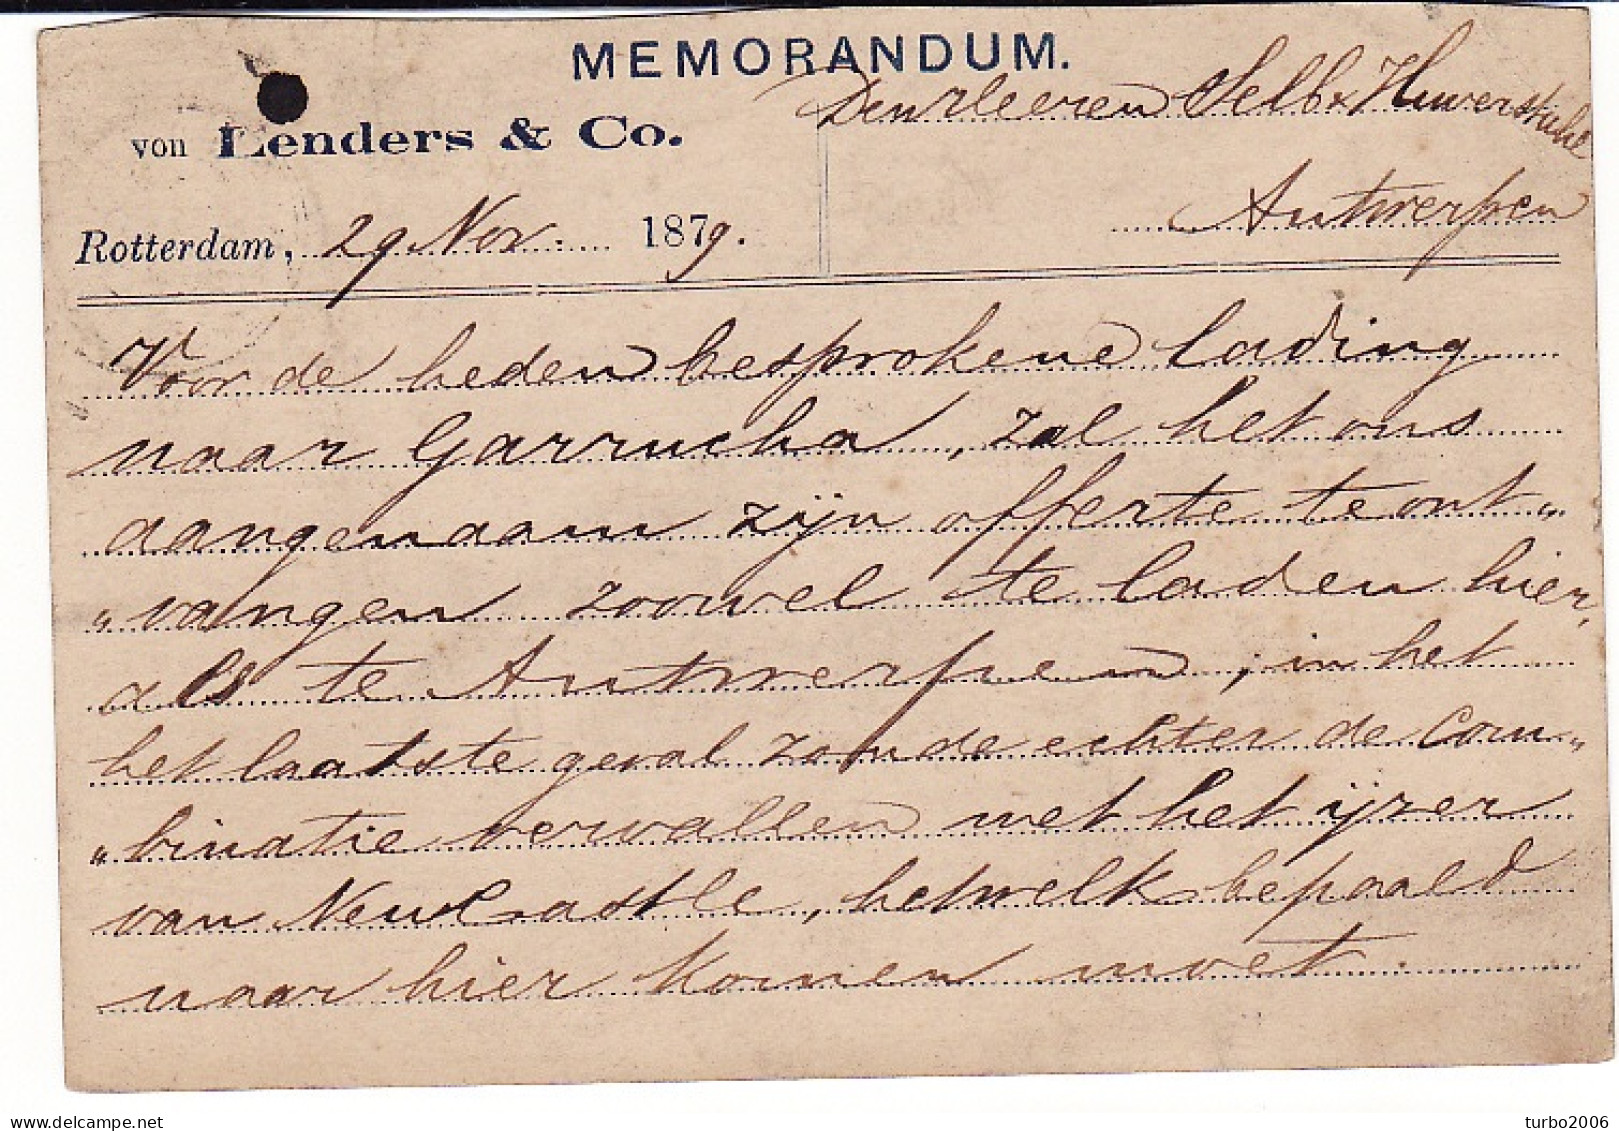 MEMORANDUM.
Den Heeren Selb & Huverstuhl
von Lenders & Co.
Antwerpen
Rotterdam, 29 Nov. 1879.
Voor de heden besprokene lading
naar Garrucha, zal het ons
aangenaam zijn offerte te ont„
„vangen zoowel te laden hier,
als te Antwerpen, in het
het laatste geval zoude echter de Com„
„binatie vervallen met het ijzer
van NewCastle, hetwelk bepaald
naar hier komen moet.
turbo2006